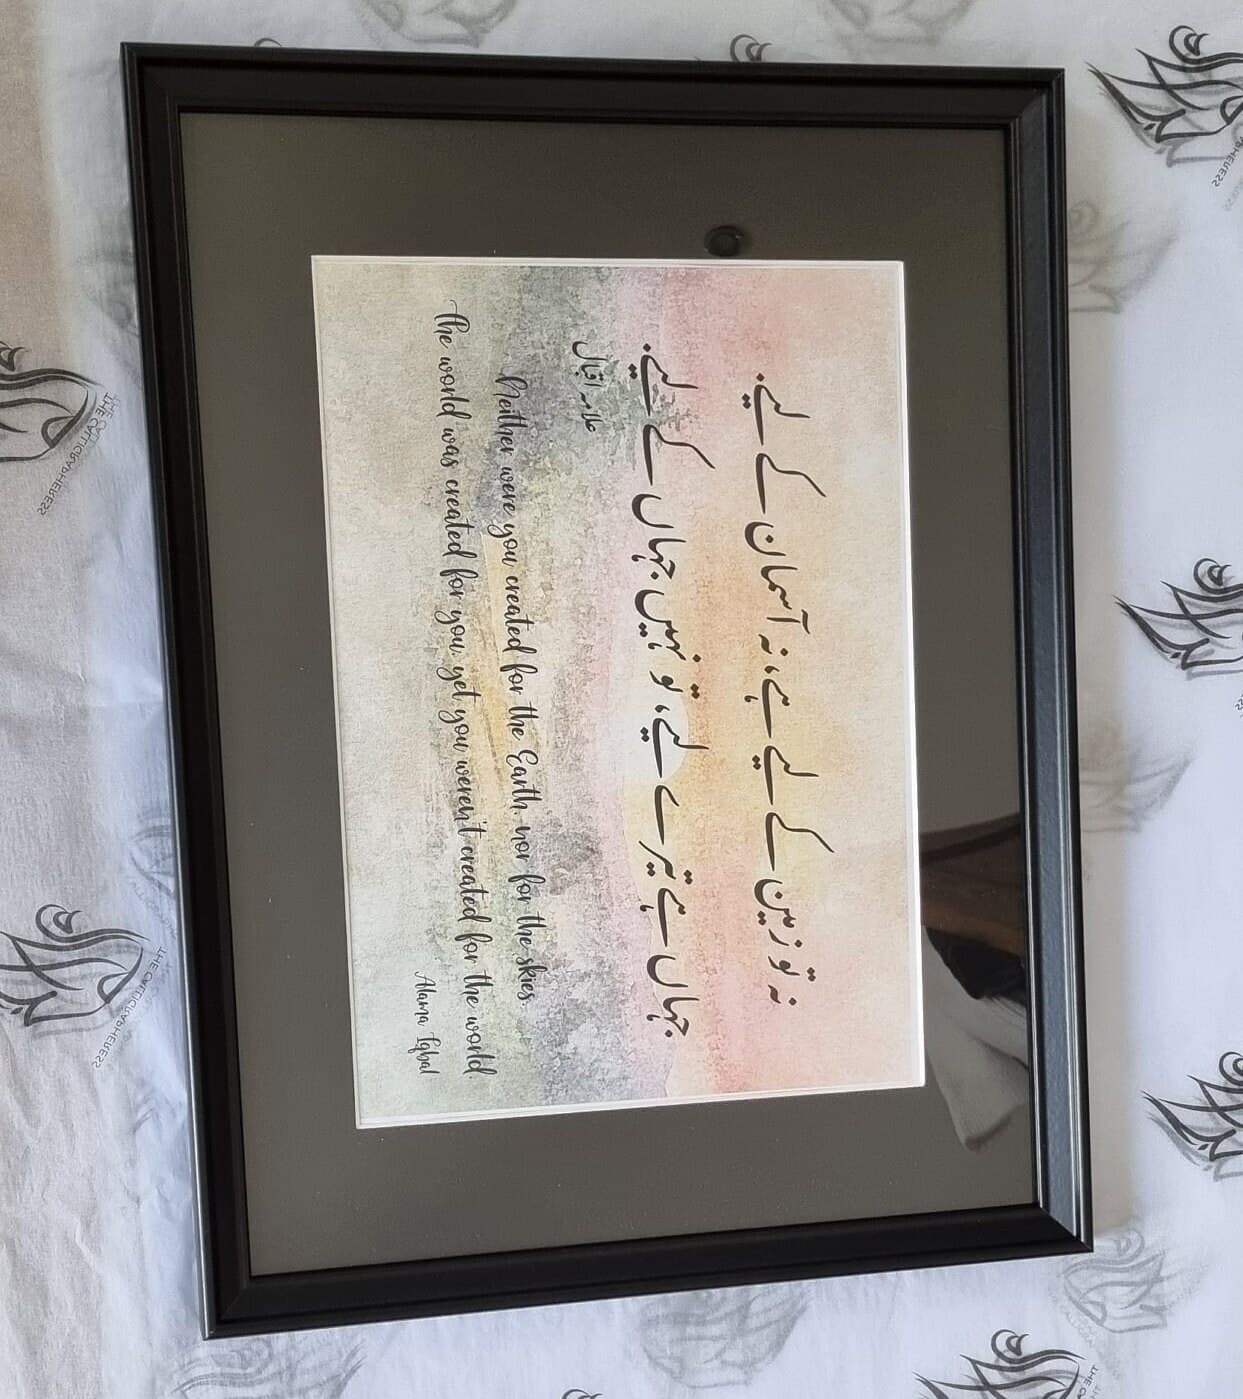 نہ تو زمیں کے لیے ہے، نہ آسماں کے لیے۔
جہاں ہے تیرے لیے، تو نہیں جہاں کے لیے۔
علامہ اقبال
Neither were you created for the Earth, nor for the skies.
The world was created for you, yet you weren't created for the world.
Alama Iqbal
THE CALLIGRAPHERESS
THE CALLIGRAPHERESS